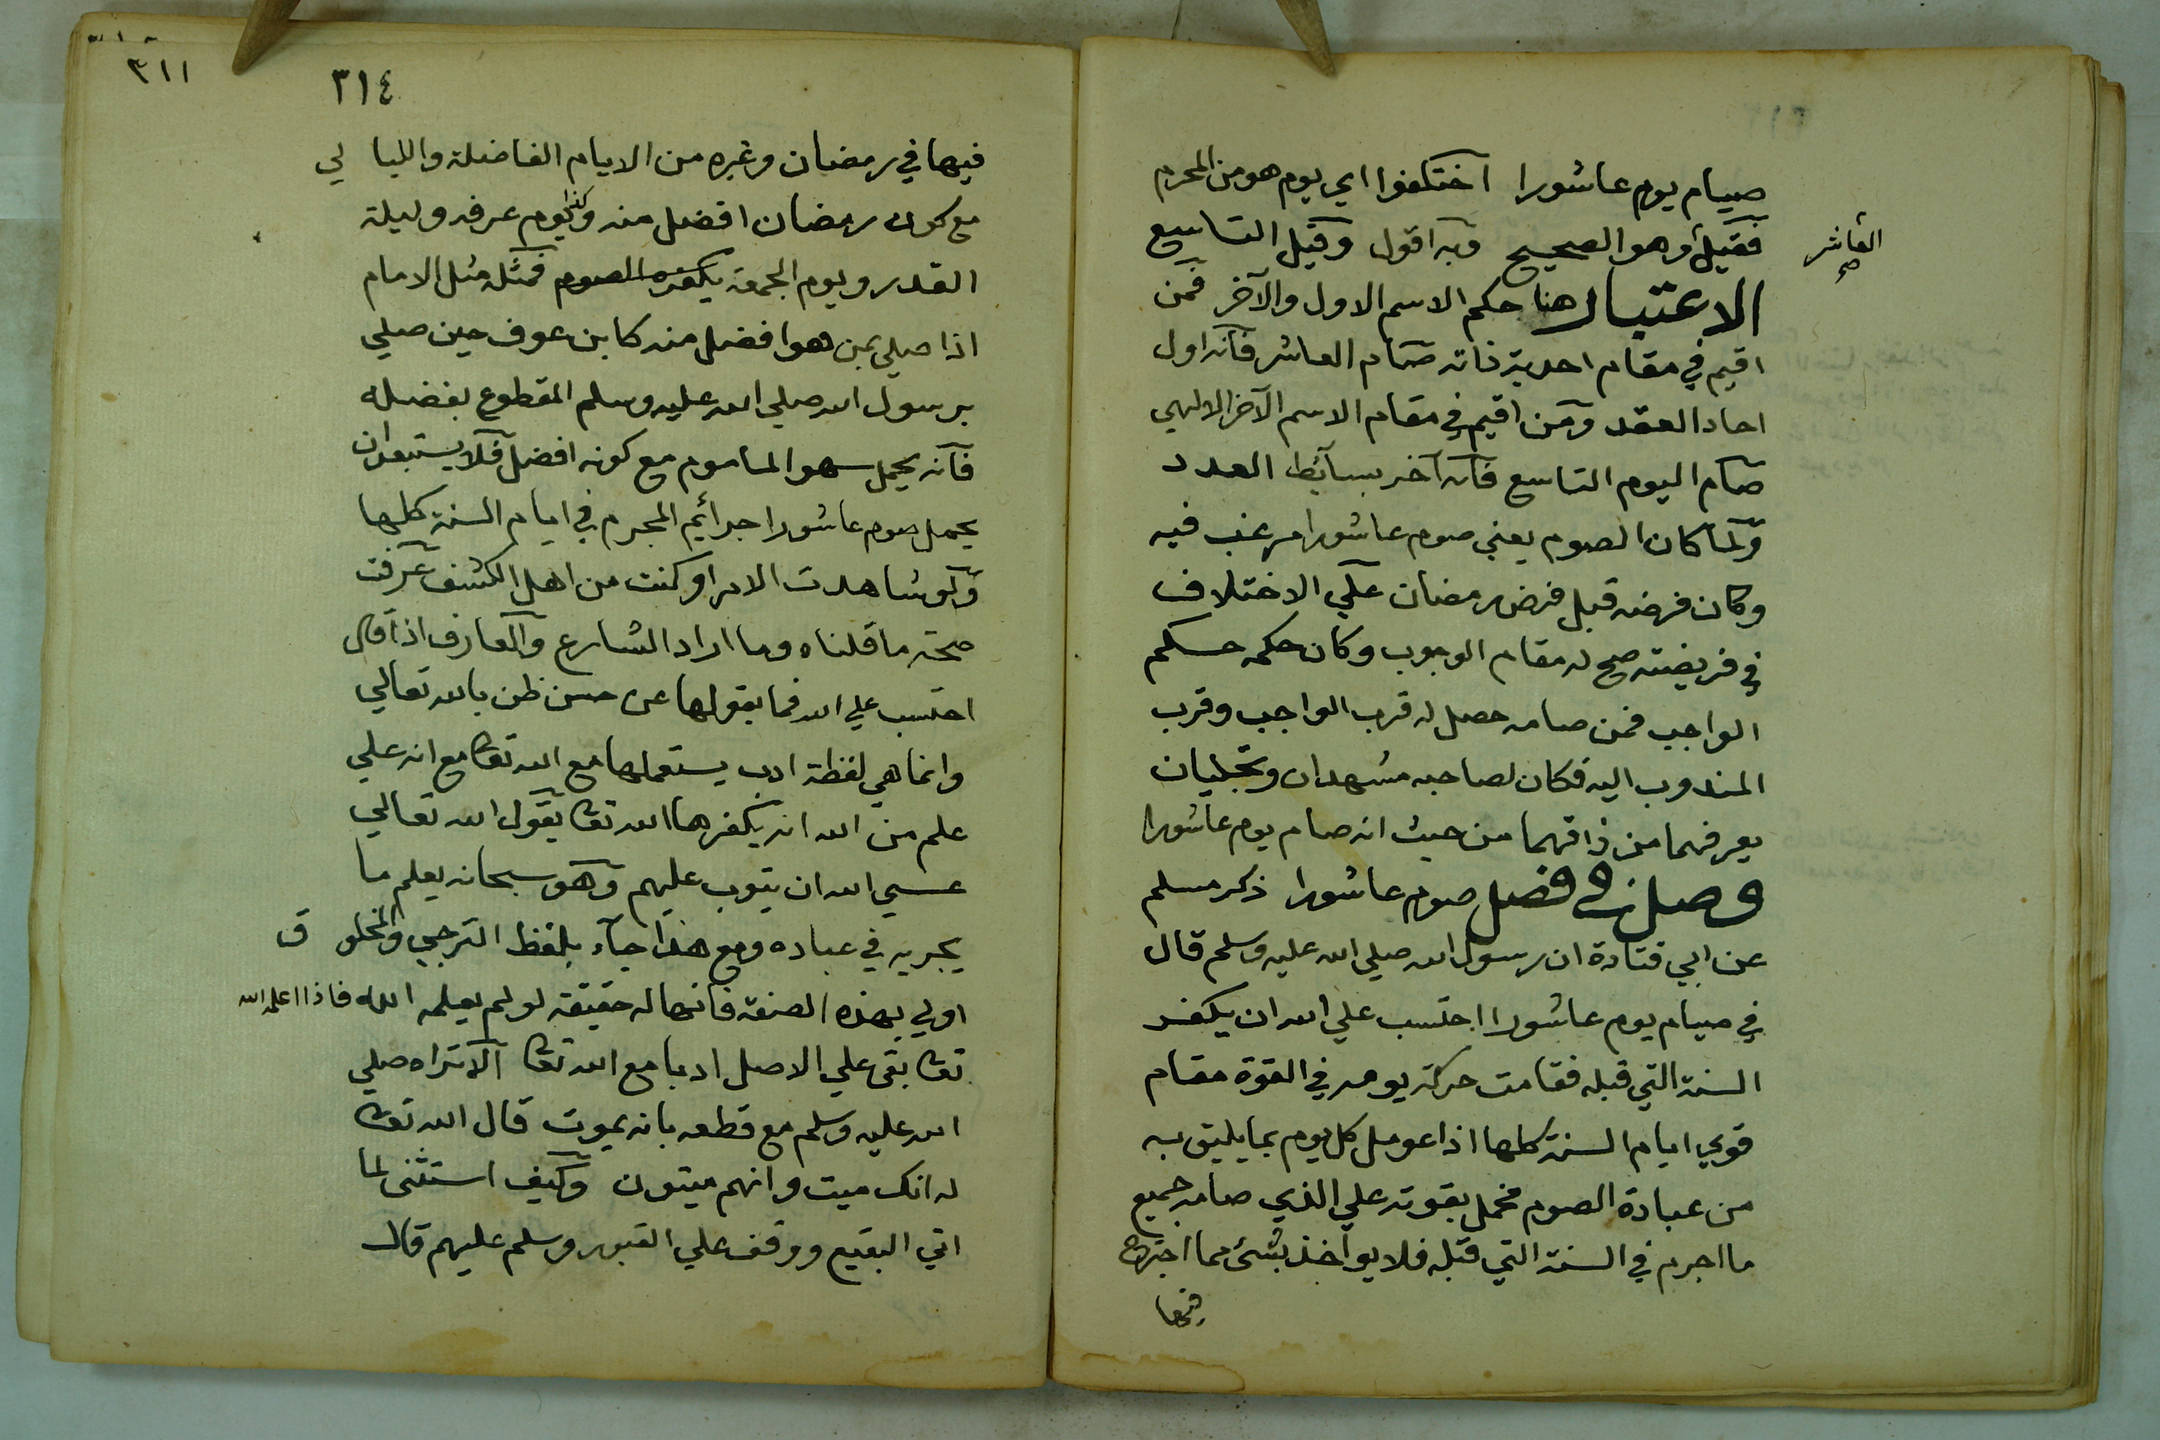 صيام يوم عاشورا اختلفوا اي يوم هو من المحرم
فقيل وهو الصحيح وبه اقول وقيل التاسع
العاشر صح
الاعتبار هنا حكم الاسم الاول والآخر فمن
اقيم في مقام احدية ذاته صام العاشر فانه اول
احاد العقد ومن اقيم في مقام الاسم الآخر الالهي
صام اليوم التاسع فانه آخر بسائط العدد
ولما كان الصوم يعني صوم عاشورا مرغب فيه
وكان فرضه قبل فرض رمضان علي الاختلاف
في فريضته صح له مقام الوجوب وكان حكمه حكم
الواجب فمن صامه حصل له قرب الواجب وقرب
المندوب اليه فكان لصاحبه مشهدان وتجليان
يعرفهما من ذاقهما من حيث انه صام يوم عاشورا
وصل في فضل صوم عاشورا ذكر مسلم
عن ابي قتادة ان رسول الله صلي الله عليه وسلم قال
في صيام يوم عاشورا احتسب علي الله ان يكفر
السنة التي قبله فقامت حركة يومه في القوة مقام
قوي ايام السنة كلها اذا عومل كل يوم بما يليق به
من عبادة الصوم فحمل بقوته علي الذي صامه جميع
ما اجرم في السنة التي قبله فلا يواخذ بشئ مما اجترح
فيها
٣١١
٣١٤
فيها في رمضان وغيره من الايام الفاضلة والليا لي
مع كون رمضان افضل منه وكذا يوم عرفه وليلة
القدر ويوم الجمعة يكفره الصوم فمثله مثل الامام
اذا صلي بمن هو افضل منه كابن عوف حين صلي
برسول الله صلي الله عليه وسلم المقطوع بفضله
فانه يحمل سهو الماموم مع كونه افضل فلا يستبعد ان
يحمل صوم عاشورا جرائم المجرم في ايام السنة كلها
ولو شاهدت الامر او كنت من اهل الكشف عرفت
صحة ما قلناه وما اراد الشارع والعارف اذا قال
احتسب علي الله فما يقولها عن حسن ظن بالله تعالي
وانما هي لفظة ادب يستعملها مع الله تعا مع انه علي
علم من الله انه يكفرها الله تعا يقول الله تعالي
عسي الله ان يتوب عليهم وهو سبحانه يعلم ما
يجريه في عباده ومع هذا جآء بلفظ الترجي والمخلو ق
اولي بهذه الصفة فانها له حقيقة لو لم يعلمه الله فاذا اعلمه الله
تعا بقي علي الاصل ادبا مع الله تعا الا تراه صلي
الله عليه وسلم مع قطعه بانه يموت قال الله تعا
له انك ميت وانهم ميتون وكيف استثنى لما
اتي البقيع ووقف علي القبور وسلم عليهم قال